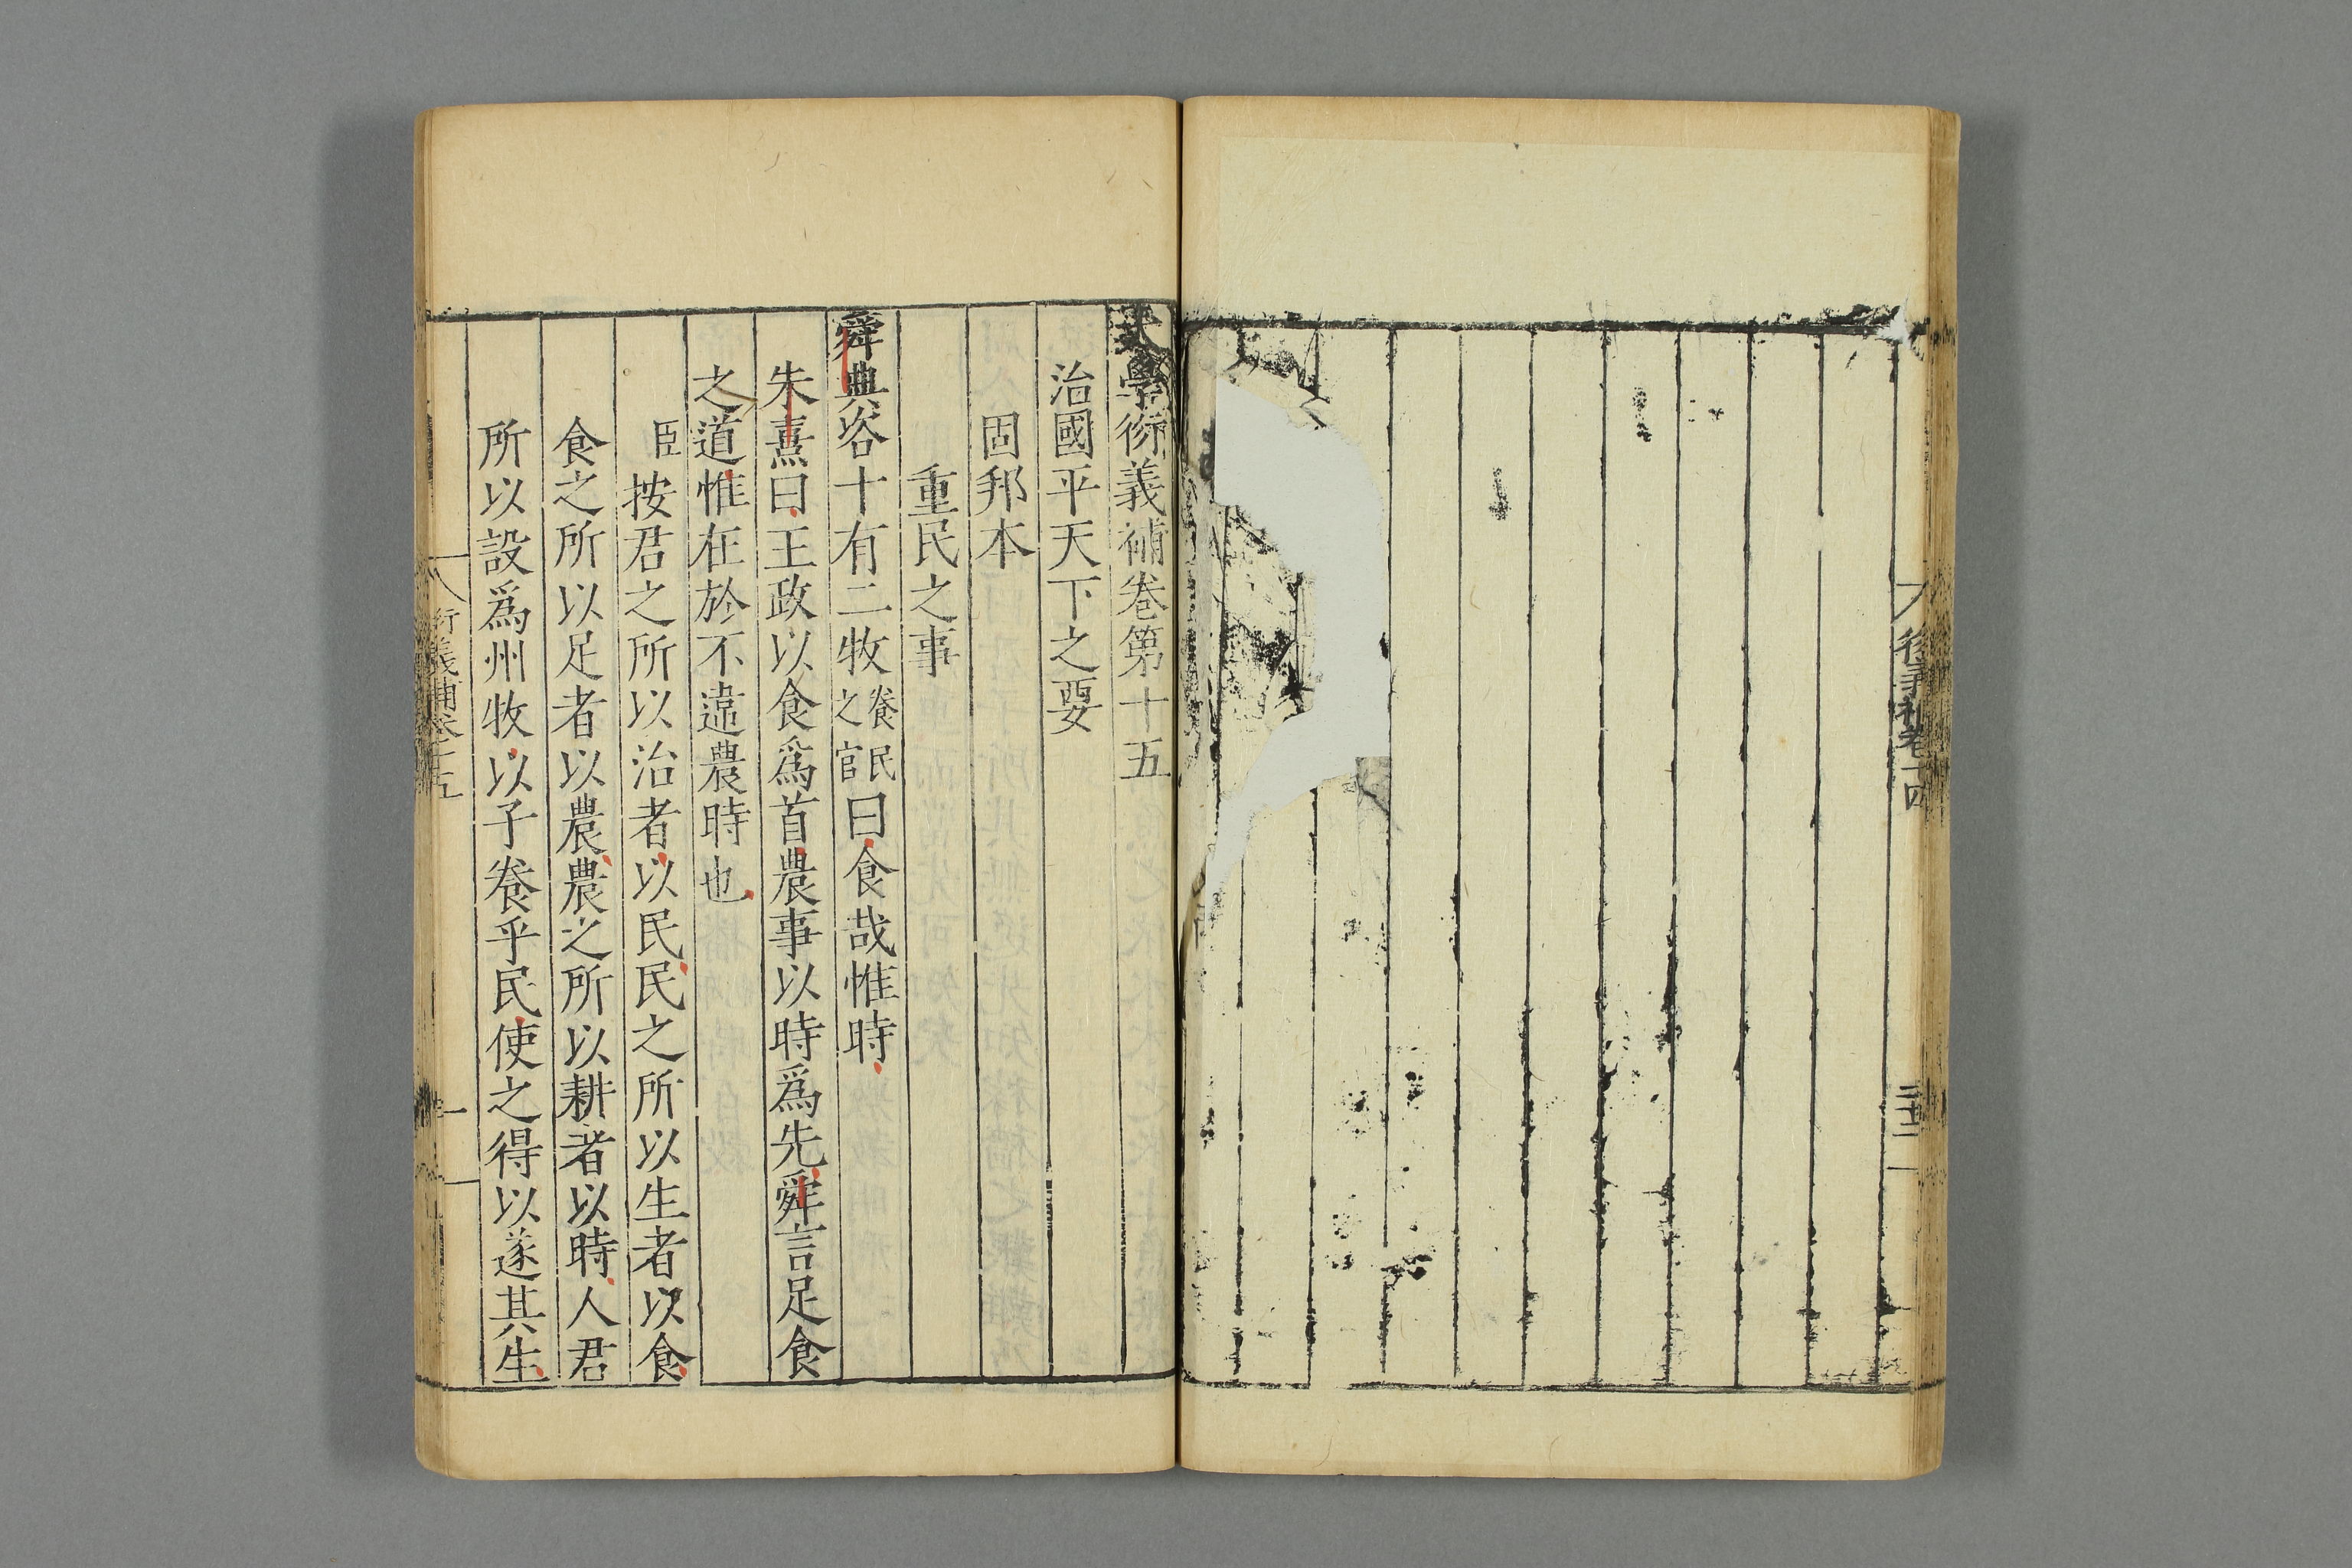 衍義補卷十四
大學衍義補卷第十五
治國平天下之要
固邦本
重民之事
舜典咨十有二牧養民之官曰食哉惟時
朱熹曰王政以食爲首農事以時爲先舜言足食
之道惟在於不違農時也
臣按君之所以治者以民民之所以生者以食
食之所以足者以農農之所以耕者以時人君
所以設爲州牧以子養乎民使之得以遂其生
衍義補卷十五
一